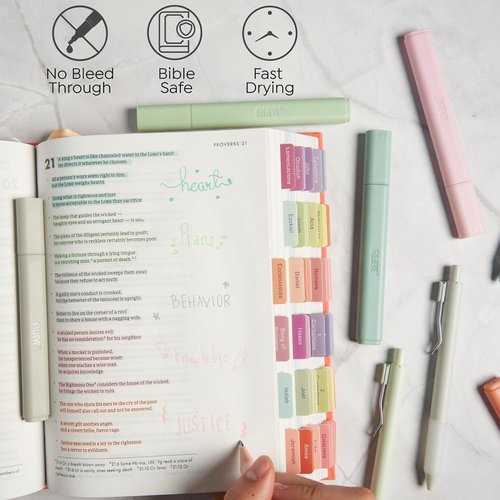 No Bleed
Through
Bible
Safe
Fast
Drying
PROVERBS 21
21 A king's heart is like channeled water in the LORD's hand:
He directs it wherever he chooses.
All a person's ways seem right to him,
but the LORD weighs hearts.
Doing what is righteous and just
is more acceptable to the LORD than sacrifice
The lamp that guides the wicked—
haughty eyes and an arrogant heart — is sin.
The plans of the diligent certainly lead to profit,
but anyone who is reckless certainly becomes poor
Making a fortune through a lying tongue
is a vanishing mist, a pursuit of death.
The violence of the wicked sweeps them away
because they refuse to act justly.
A guilty one's conduct is crooked,
but the behavior of the innocent is upright.
Better to live on the corner of a roof
than to share a house with a nagging wife.
A wicked person desires evil;
he has no consideration for his neighbor.
When a mocker is punished,
the inexperienced become wiser;
when one teaches a wise man,
he acquires knowledge.
The Righteous One considers the house of the wicked;
he brings the wicked to ruin.
The one who shuts his ears to the cry of the poor
will himself also call out and not be answered.
A secret gift soothes anger,
and a covert bribe, fierce rage.
Justice executed is a joy to the righteous
but a terror to evildoers.
heart
Plans
BEHAVIOR
knowledge
JUSTICE
Lamentations
Obadiah
John
Ezekiel
Jonah
Acts
Daniel
Romans
Song of
Hosea
Isaiah
Joel
Jeremiah
Amos
Galatians